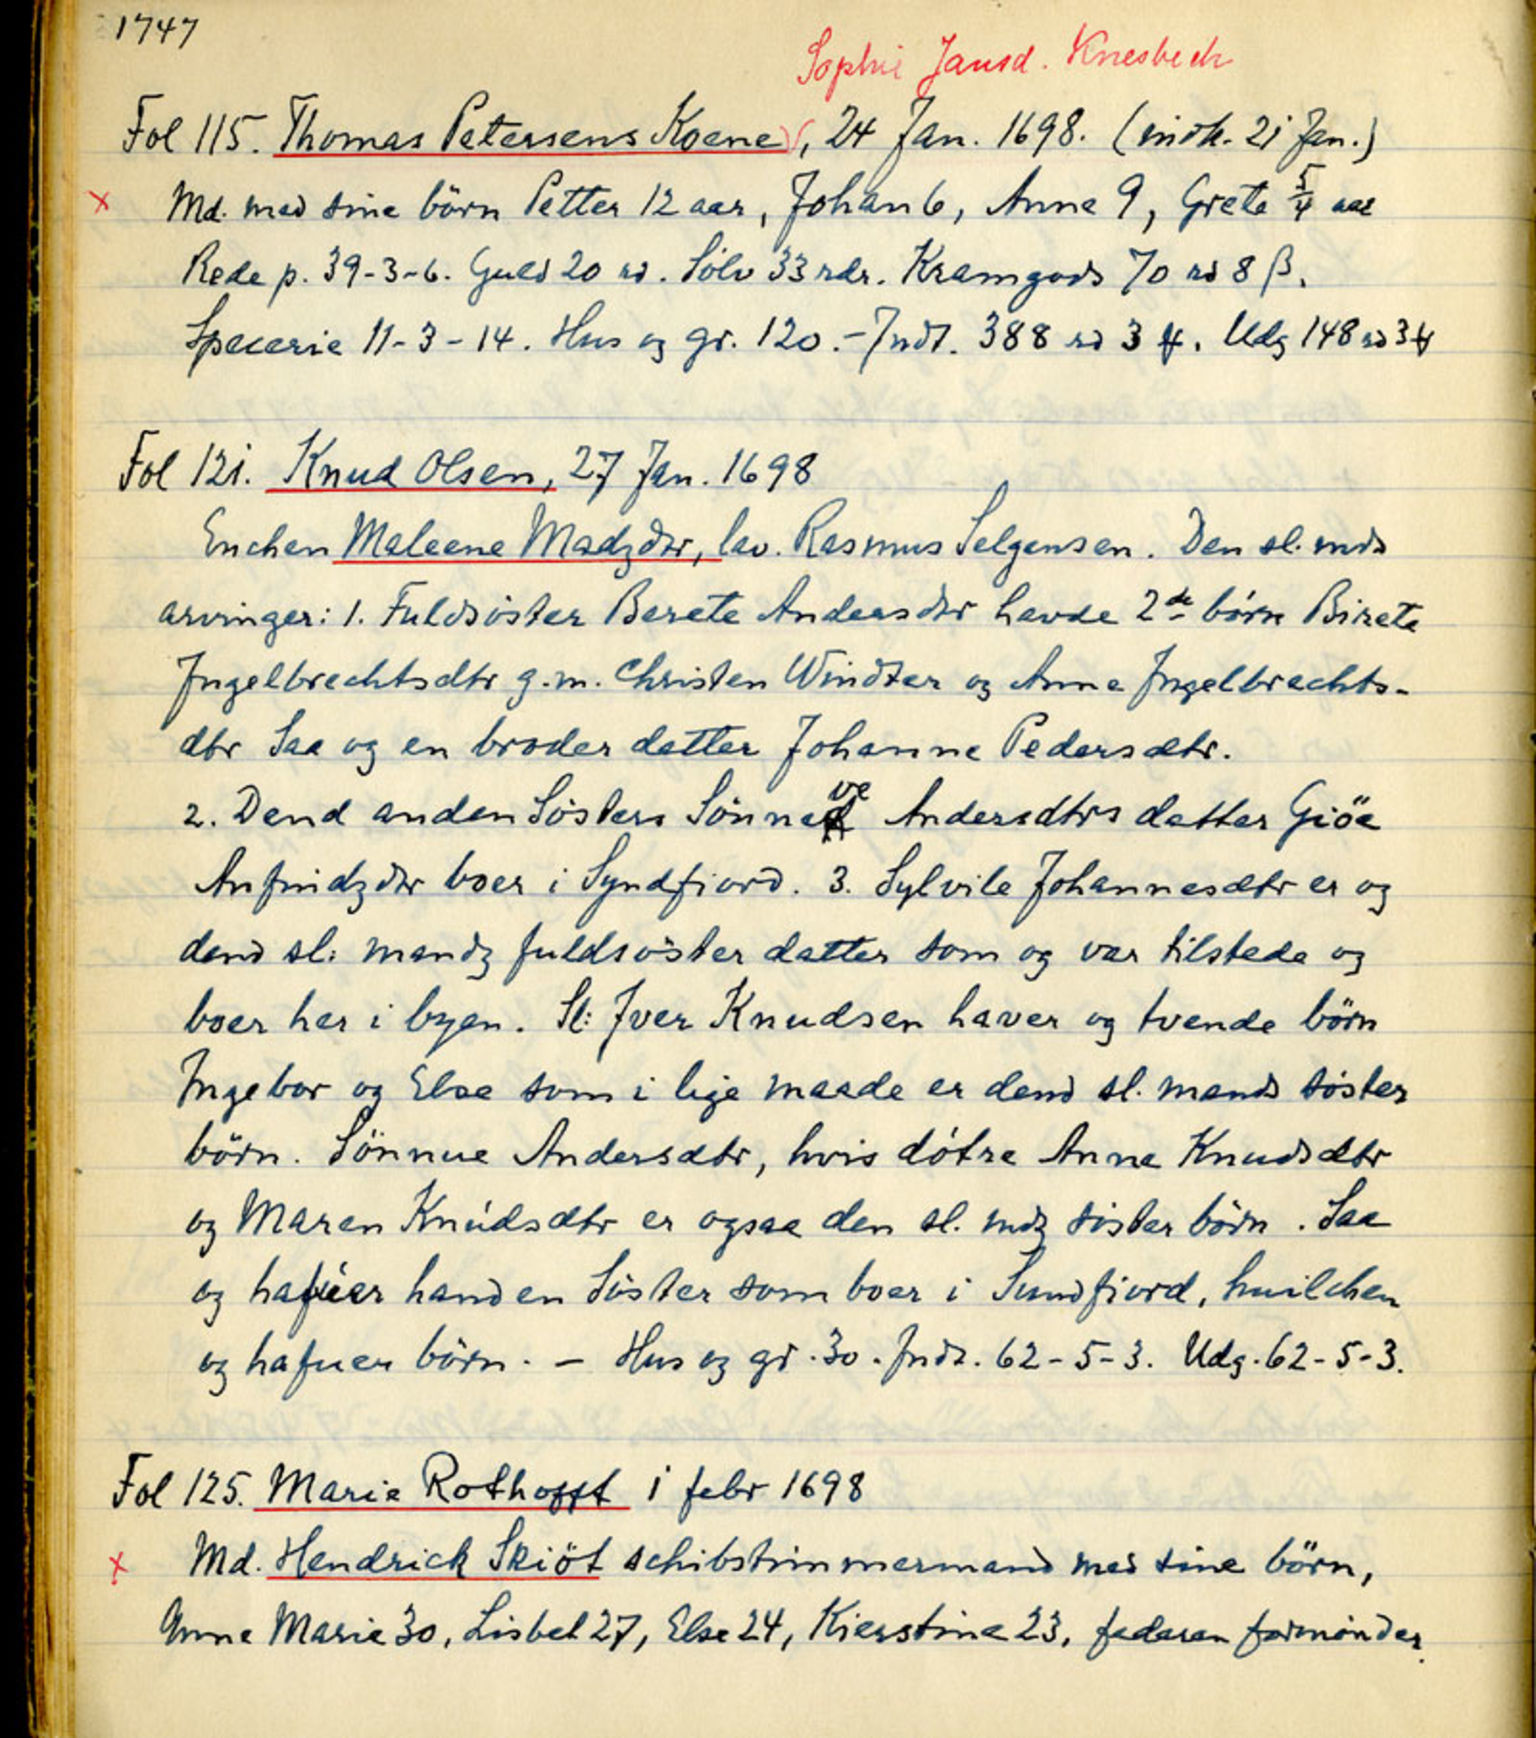 1747
Sophie Jansd. Knesbech
Fol 115. Thomas Petersens Koene, 24 Jan. 1698. (indk. 21 Jan.)
x Md. med sine börn Petter 12 aar, Johan 6, Anne 9, Grete 5/4 aar
Rede p. 39-3-6. Guld 20 rd. Sölv 33 rdr. Kramgods 70 rd 8 β.
Specerie 11-3-14. Hus og gr. 120.- Indt. 388 rd 3 ꝟ. Udg 148 rd 3 ꝟ
Fol 121. Knud Olsen, 27 Jan. 1698
Enchen Maleene Madzdtr, lav. Rasmus Selgensen. Den sl. mds
arvinger: 1. Fuldsöster Berete Andersdtr havde 2de börn Birete
Ingelbrechtsdtr g.m. Christen Windter og Anne Ingelbrechts-
dtr Saa og en broder datter Johanne Pedersdtr.
2. Dend anden Sösters Sönneve Andersdtrs datter Giöe
Anfindzdtr boer i Syndfiord. 3. Sylvile Johannesdtr er og
dend sl: mandz fuldsöster datter som og var tilstede og
boer her i byen. Sl: Iver Knudsen haver og tvende börn
Ingebor og Else som i lige maade er dend sl. mands söster
börn. Sönnue Andersdtr, hvis dötre Anne Knudsdtr
og Maren Knúdsdtr er ogsaa den sl. mdz söster börn. Saa
og hafúer hand en Söster som boer i Sundfiord, huilchen
og hafuer börn. - Hus og gr. 30. Indt. 62-5-3. Udg. 62-5-3.
Fol 125. Marie Rothofft 1 febr 1698
x Md. Hendrick Skiöt schibstimmermand med sine börn,
Anne Marie 30, Lisbet 27, Else 24, Kierstine 23, faderen formönder.